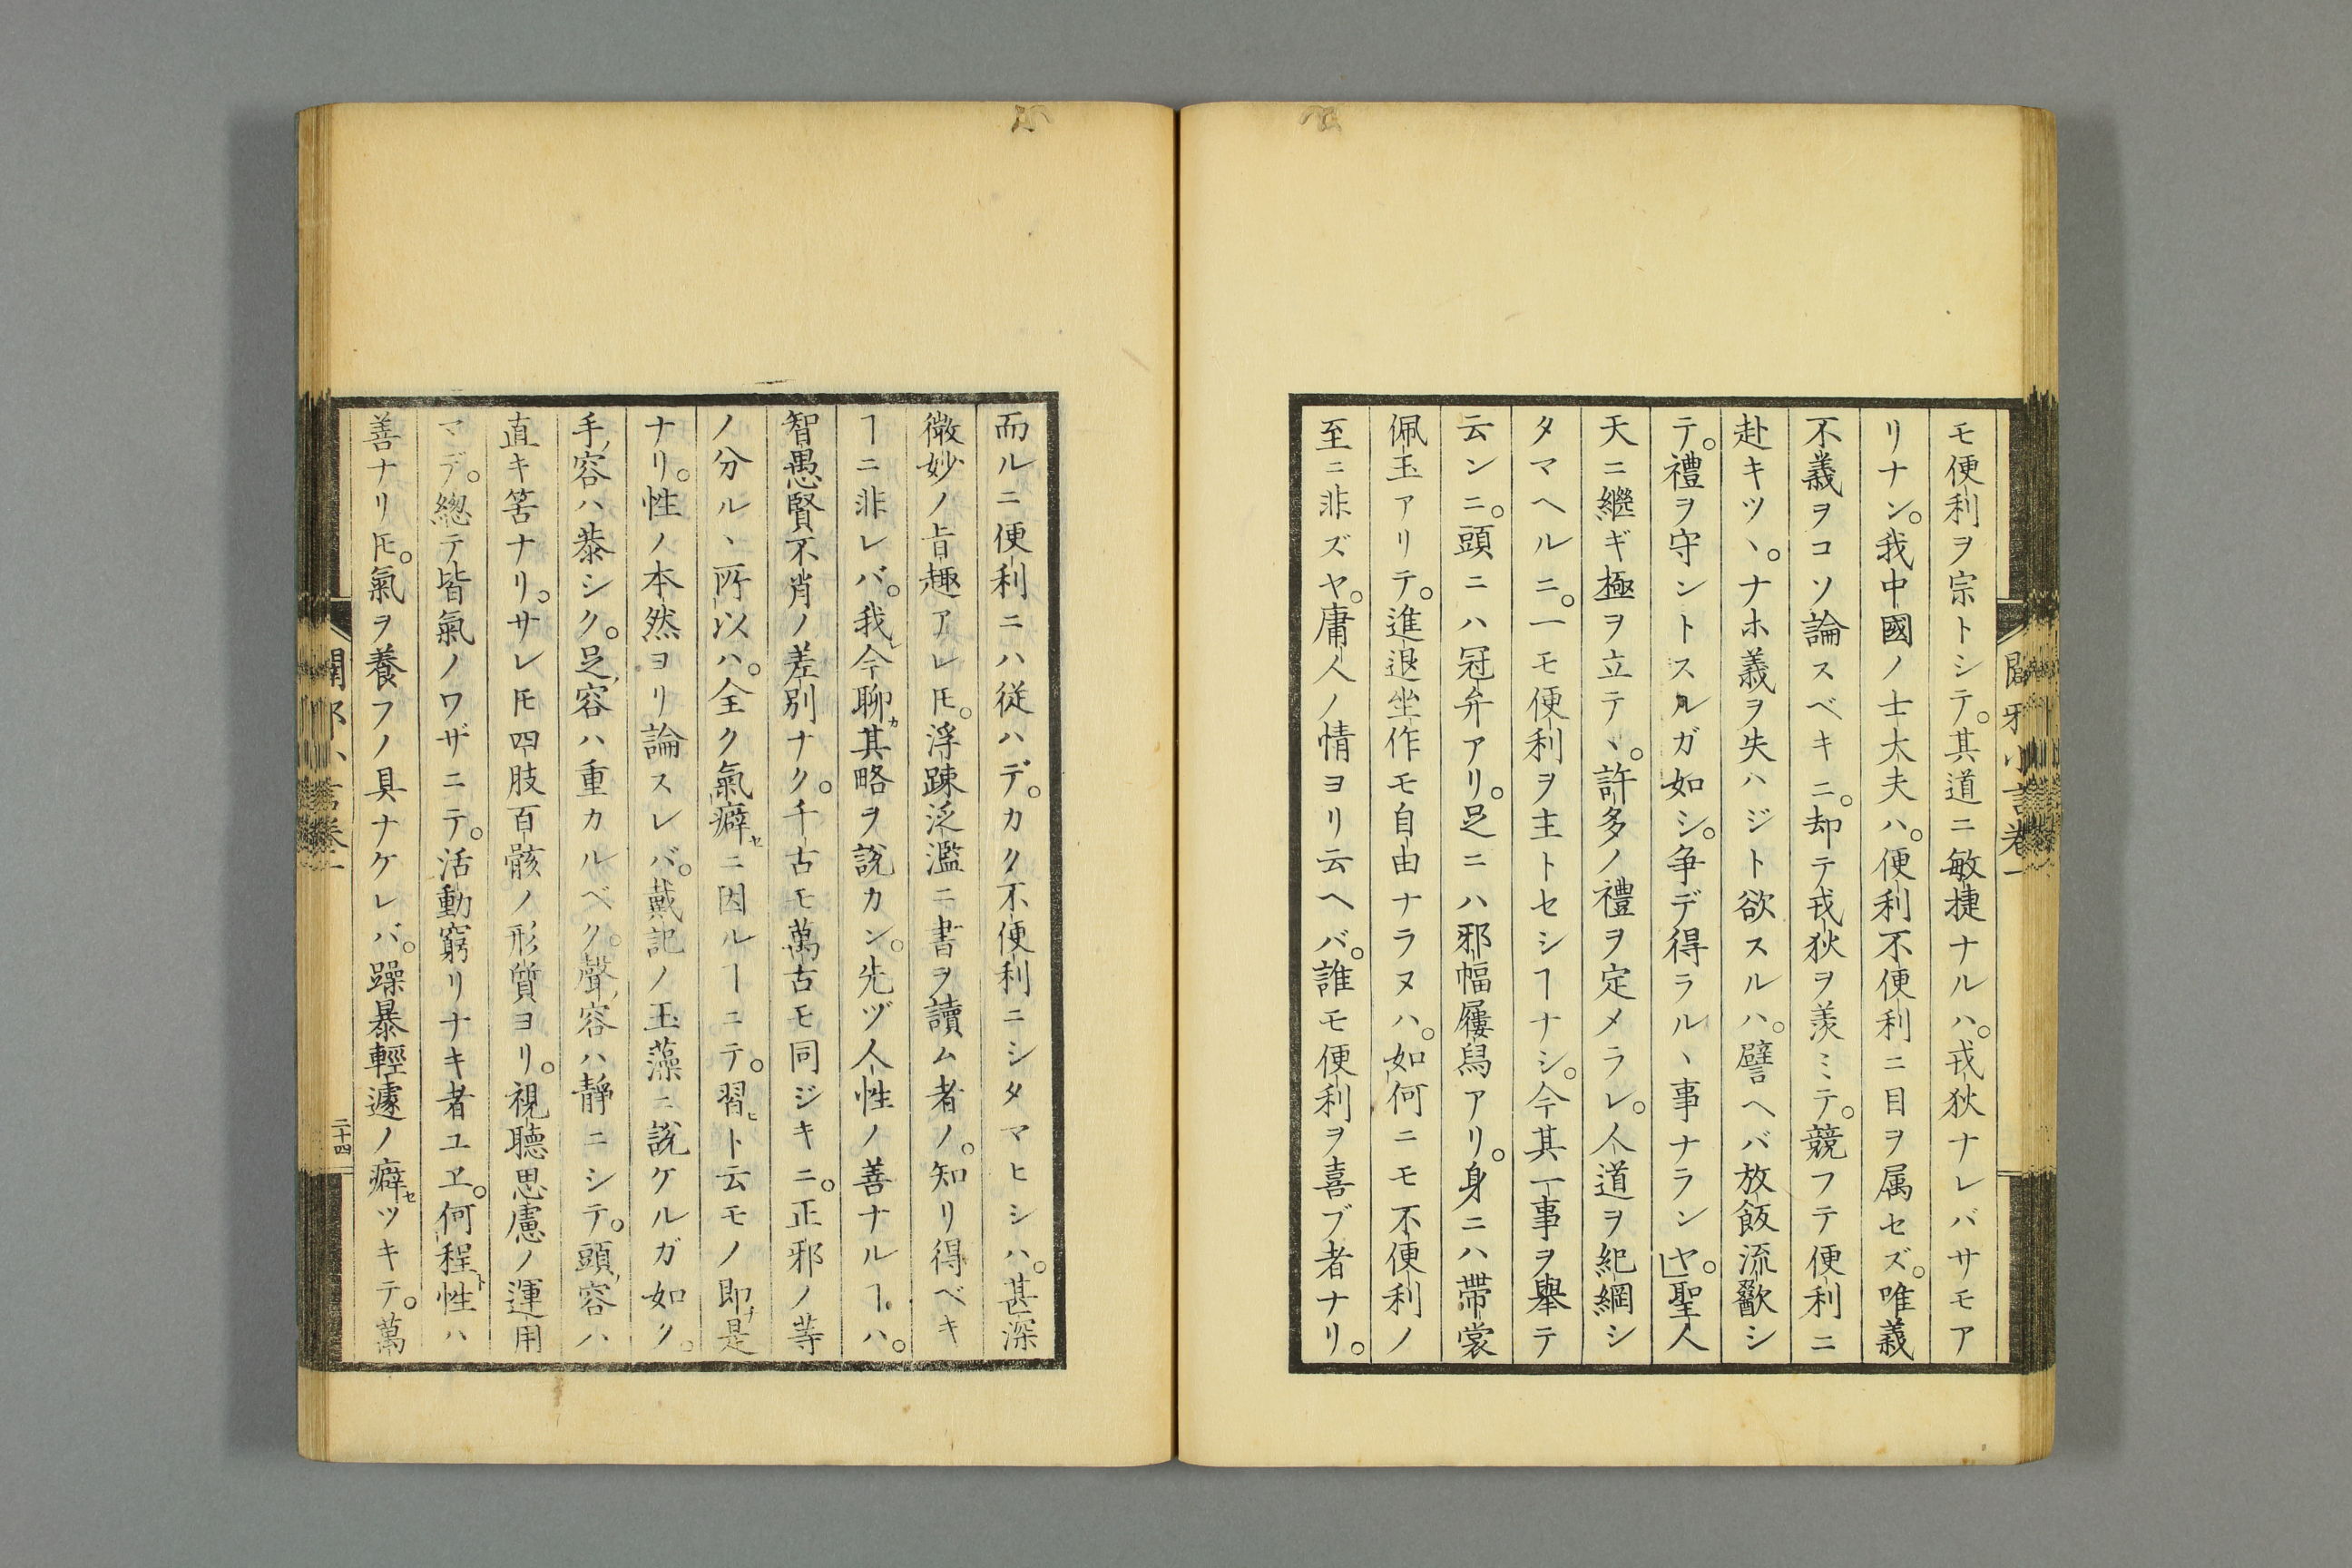 モ便利ヲ宗トシテ。其道ニ敏捷ナルハ。戎狄ナレバサモア
リナン。我中國ノ士大夫ハ。便利不便利ニ目ヲ属セズ。唯義
不義ヲコソ論スベキニ。却テ戎狄ヲ羨ミテ。競フテ便利ニ
赴キツヽ。ナホ義ヲ失ハジト欲スルハ。譬ヘバ放飯流歠シ
テ。禮ヲ守ントスルガ如シ。争デ得ラルヽ事ナランヤ。聖人
天ニ繼ギ極ヲ立テヽ。許多ノ禮ヲ定メラレ。人道ヲ紀綱シ
タマヘルニ。一モ便利ヲ主トセシヿナシ。今其一事ヲ擧テ
云ンニ。頭ニハ冠弁アリ。足ニハ邪幅屨舄アリ。身ニハ帶裳
佩玉アリテ。進退坐作モ自由ナラヌハ。如何ニモ不便利ノ
至ニ非ズヤ。庸人ノ情ヨリ云ヘバ。誰モ便利ヲ喜ブ者ナリ。
闢邪小言卷一
而ルニ便利ニハ従ハデ。カク不便利ニシタマヒシハ。甚深
微妙ノ旨趣アレ𪜈。浮踈泛濫ニ書ヲ讀ム者ノ。知リ得ベキ
ヿニ非レバ。我レ今聊カ其略ヲ説カン。先ヅ人性ノ善ナルヿハ。
智愚賢不肖ノ差別ナク。千古モ萬古モ同ジキニ。正邪ノ等
ノ分ルヽ所以ハ。全ク氣癖セニ因ルヿニテ。習ヒト云モノ即ナ是
ナリ。性ノ本然ヨリ論スレバ。戴記ノ玉藻ニ説ケルガ如ク。
手ノ容ハ恭シク。足ノ容ハ重カルベク。聲ノ容ハ靜ニシテ。頭ノ容ハ
直キ筈ナリ。サレ𪜈四肢百骸ノ形質ヨリ。視聴思慮ノ運用
マデ。總テ皆氣ノワザニテ。活動窮リナキ者ユヱ。何程ト性ハ
善ナリ𪜈。氣ヲ養フノ具ナケレバ。躁暴輕遽ノ癖セツキテ。萬
闢邪小言卷一
二十四